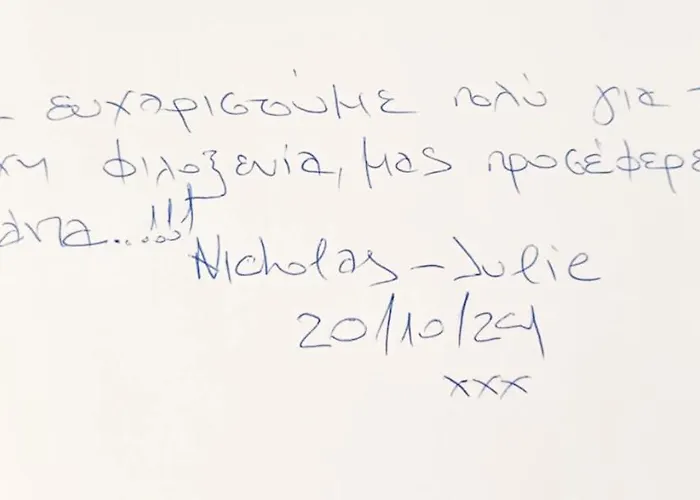 ευχαριστούμε πολύ για
φιλοξενία, μας προσέφερε
Nicholas - Julie
20/10/24
xxx